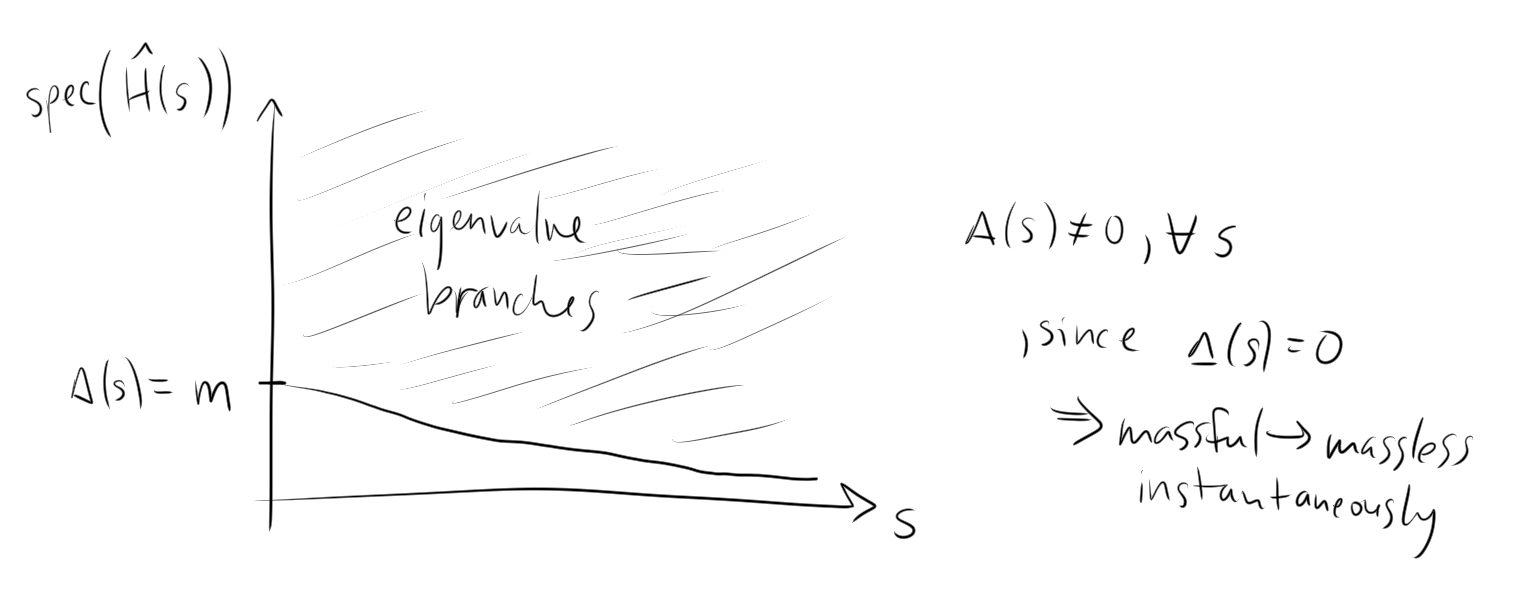 spec(Ĥ(s))
eigenvalue
branches
Δ(s) = m
s
Δ(s) ≠ 0, ∀ s
, since Δ(s) = 0
⇒ massful → massless
instantaneously